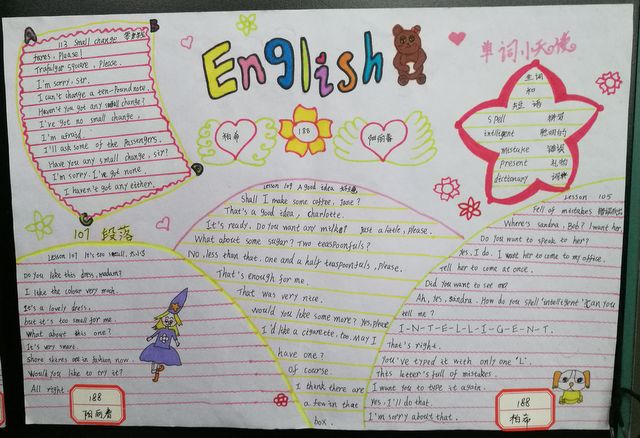 English
A
B
C
D
113 Small change
fares, please!
Trafalgar Square, please.
I'm sorry, sir.
I can't change a ten-pound note.
Haven't you got any small change?
I've got no small change.
I'm afraid.
I'll ask some of the passengers.
Have you any small change, sir?
I'm sorry. I've got none.
I haven't got any either.
柏希
188
阳丽春
单词小天使
单词
和
短语
Spell 拼写
intiligent 聪明的
mistake 错误
present 礼物
dictionary 词典
107 段落
Lesson 107 It's too small.
Do you like this dress, madam?
I like the colour very much.
It's a lovely dress.
but it's too small for me.
What about this one?
It's very smart.
Short skirts are in fashion now.
Would you like to try it?
All right
188
阳丽春
Lesson 109 A good idea
Shall I make some coffee, Jane?
That's a good idea, Charlotte.
It's ready. Do you want any milk? Just a little, please.
What about some sugar? Two teaspoonfuls?
No, less than that. One and a half teaspoonfuls, please.
That's enough for me.
That was very nice.
Would you like some more? Yes, please
I'd like a cigarette, too. May I
have one?
Of course.
I think there are
a few in that
box.
Lesson 105
Full of mistakes
Where's Sandra, Bob? I want her.
Do you want to speak to her?
Yes, I do. I want her to come to my office.
tell her to come at once.
Did you want to see me?
Ah, yes, Sandra. How do you spell 'intelligent'? Can you
tell me?
I-N-T-E-L-L-I-G-E-N-T.
That's right.
You've typed it with only one 'L'.
This letter's full of mistakes.
I want you to type it again.
yes, I'll do that.
I'm sorry about that.
188
柏希